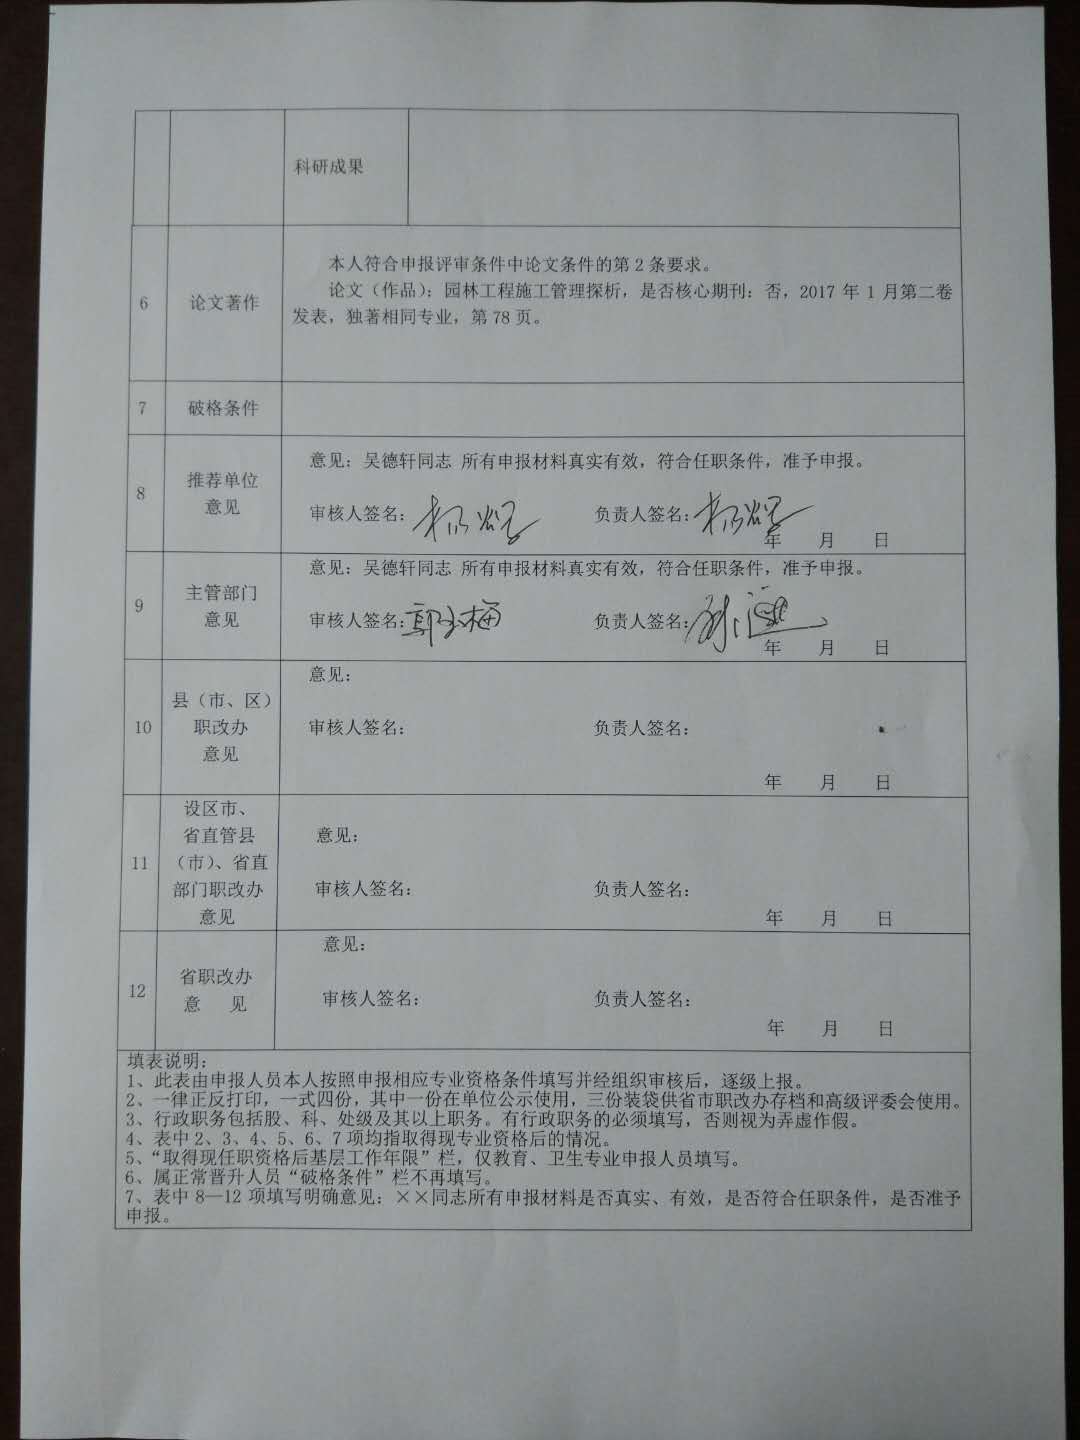 科研成果
6
论文著作
本人符合申报评审条件中论文条件的第2条要求。
论文（作品）：园林工程施工管理探析，是否核心期刊：否，2017年1月第二卷
发表，独著相同专业，第78页。
7
破格条件
8
推荐单位
意见
意见：吴德轩同志 所有申报材料真实有效，符合任职条件，准予申报。
审核人签名：
负责人签名：
年 月 日
9
主管部门
意见
意见：吴德轩同志 所有申报材料真实有效，符合任职条件，准予申报。
审核人签名：郭玉梅
负责人签名：
年 月 日
10
县（市、区）
职改办
意见
意见：
审核人签名：
负责人签名：
年 月 日
11
设区市、
省直管县
（市）、省直
部门职改办
意见
意见：
审核人签名：
负责人签名：
年 月 日
12
省职改办
意 见
意见：
审核人签名：
负责人签名：
年 月 日
填表说明：
1、此表由申报人员本人按照申报相应专业资格条件填写并经组织审核后，逐级上报。
2、一律正反打印，一式四份，其中一份在单位公示使用，三份装袋供省市职改办存档和高级评委会使用。
3、行政职务包括股、科、处级及其以上职务。有行政职务的必须填写，否则视为弄虚作假。
4、表中2、3、4、5、6、7项均指取得现专业资格后的情况。
5、“取得现任职资格后基层工作年限”栏，仅教育、卫生专业申报人员填写。
6、属正常晋升人员“破格条件”栏不再填写。
7、表中8—12项填写明确意见：××同志所有申报材料是否真实、有效，是否符合任职条件，是否准予
申报。